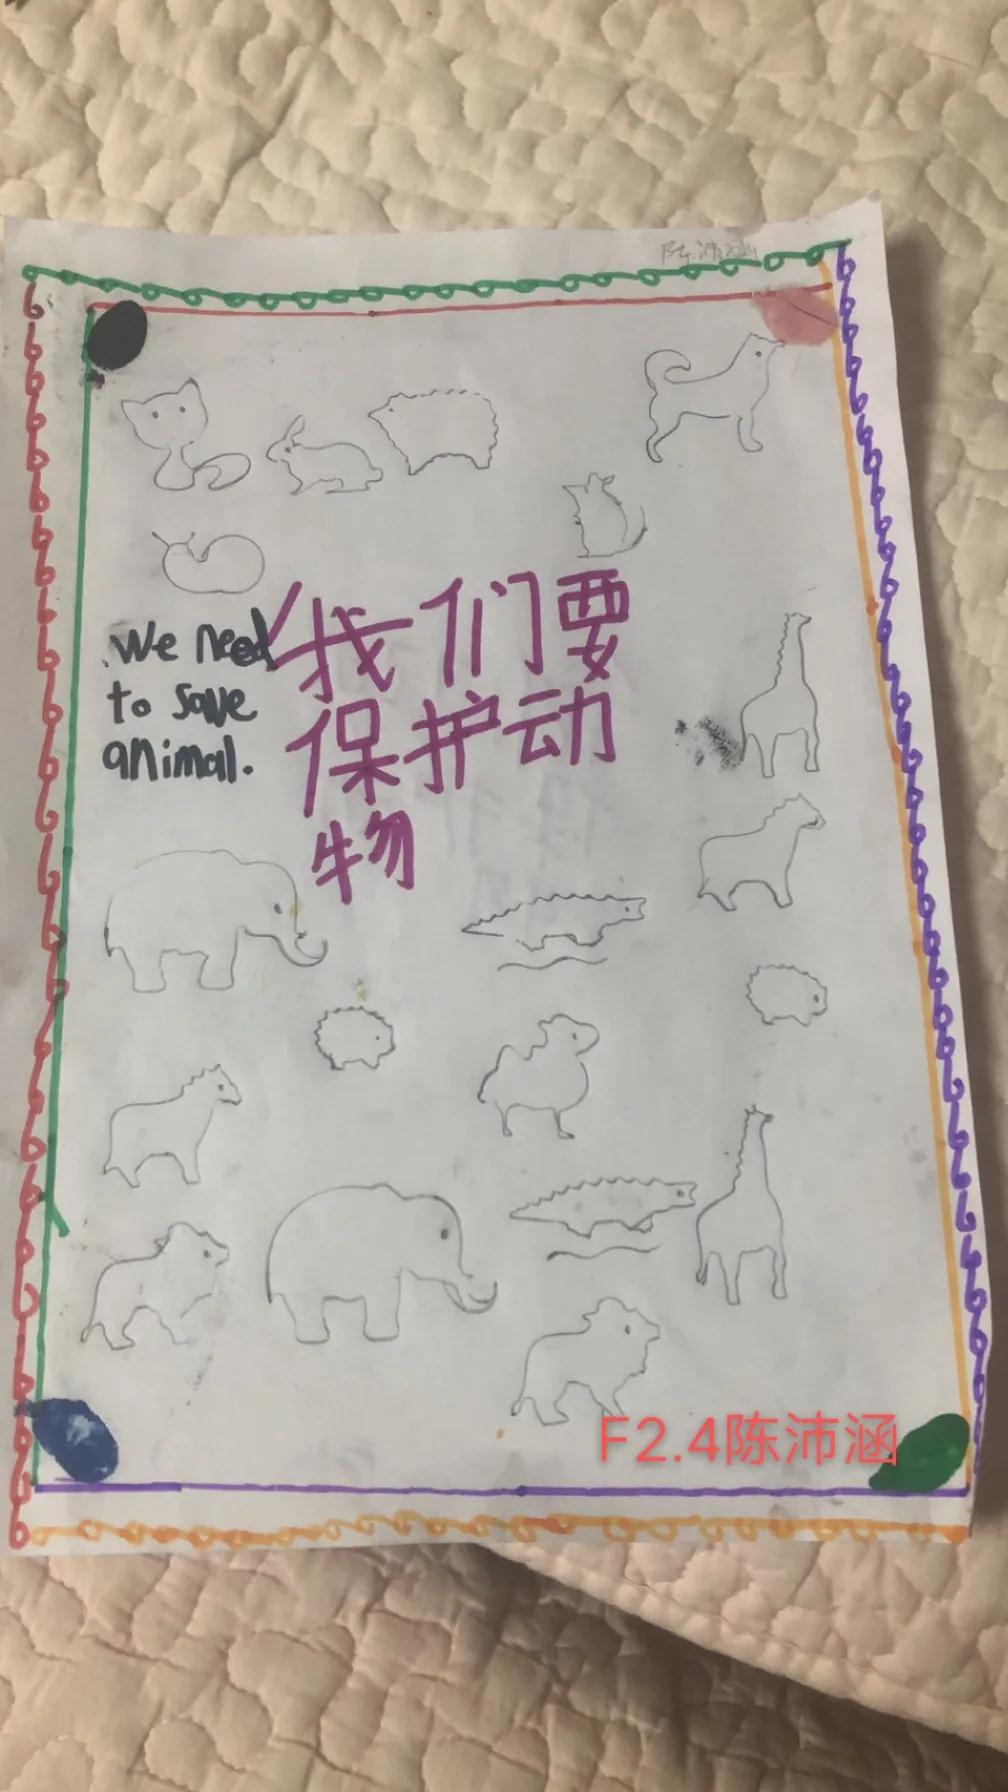 陈沛涵
We need
to save
animal.
我们要
保护动
物
F2.4陈沛涵